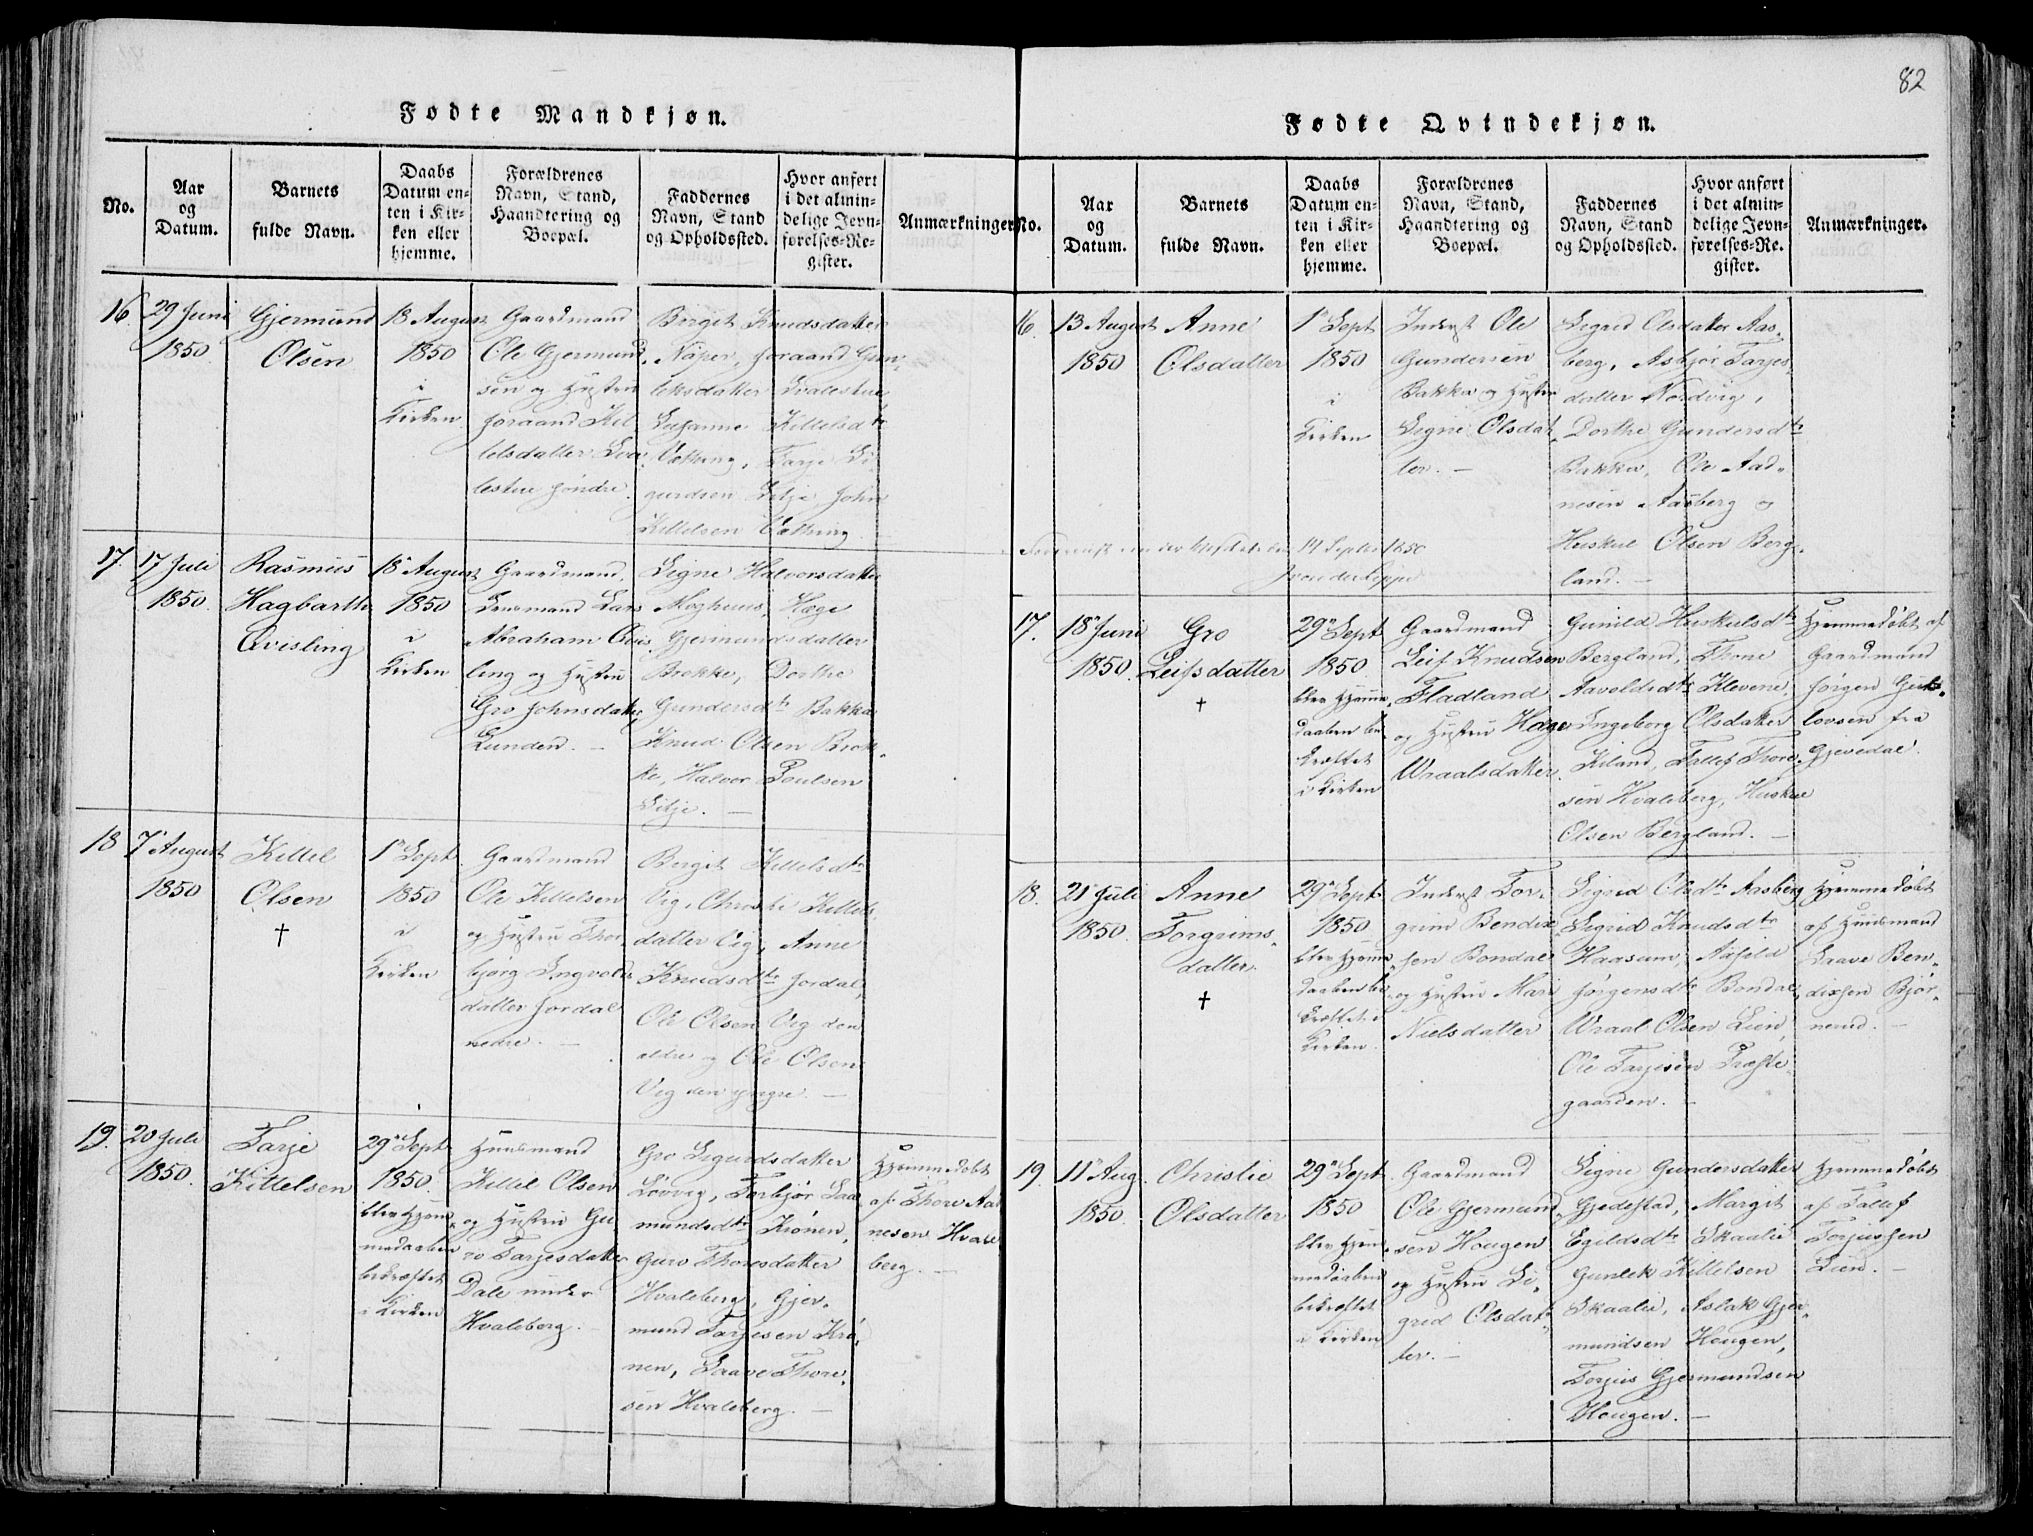 82
Fødte Mandkjøn.
No.
Aar
og
Datum.
Barnets
fulde Navn.
Daabs
Datum en-
ten i Kir-
ken eller
hjemme.
Forældrenes
Navn, Stand,
Haandtering og
Boepæl.
Faddernes
Navn, Stand
og Opholdssted.
Hvor anført
i det almin-
delige Jevn-
førelses-Re-
gister.
Anmærkninger.
16.
29 Juni
1850.
Gjermund
Olsen
18 August
1850
i
Kirken
Gaardmand
Ole Gjermund-
sen og Hustru
Joraand Kit
telsdatter Sva
lestue søndre.
Birgit Knudsdatter
Næper, Joraand Gun-
leksdatter Svalestue
Susanne Kittelsdtr
Vatting, Tarje Si-
gurdsen Lilje John
Kittelsen Vatting.
17.
17 Juli
1850.
Rasmus
Hagbarth
Qvisling
18 August
1850
i
Kirken
Gaardmand,
Lensmand Lars
Abraham Qvis-
ling og Hustru
Gro Johnsdatter
Lunden. —
Signe Halvorsdatter
Moghuus, Hæge
Gjermundsdatter
Brokke, Dorthe
Gundersdtr Bakka
Knud Olsen Brok-
ke, Halvor Poulsen
Lilje. —
18
7 August
1850
Kittel
Olsen
†
1 Sept
1850
i
Kirken
Gaardmand
Ole Kittelsen
og Hustru Thor
bjørg Ingvolds
datter Jordal
nedre. —
Berget Kittelsdtr
Vig, Christi Kittels-
datter Vig, Anne
Knudsdtr Jordal,
Ole Olsen Vig den
ældre og Ole Olsen
Vig den yngre. —
19.
20 Juli
1850.
Tarje
Kittelsen
29 Sept
1850.
blev hjem-
medaaben
bekræftet
i Kirken
Huusmand
Kittel Olsen
og Hustru Gu
ro Tarjesdatter
Dale under
Hvaleberg. —
Gro Sigurdsdatter
Løvvig, Torbjør Saa
mundsdtr Krønen,
Guro Thoresdatter
Hvaleberg, Gjer-
mund Tarjesen Krø-
nen, Saave Thore-
sen Hvaleberg. —
Hjemmedøbt
af Thore Aad
nesen Hvale
berg. —
Fødte Qvindekjøn.
No.
Aar
og
Datum.
Barnets
fulde Navn.
Daabs
Datum en-
ten i Kir-
ken eller
hjemme.
Forældrenes
Navn, Stand,
Haandtering og
Boepæl.
Faddernes
Navn, Stand
og Opholdssted.
Hvor anført
i det almin-
delige Jevn-
førelses-Re-
gister.
Anmærkninger.
16.
13 August
1850
Anne
Olsdatter
1 Sept
1850
i
Kirken
Inderst Ole
Gundersen
Bakka og Hustru
Signe Olsdat-
ter. —
Sigrid Olsdatter Aas-
berg, Asbjør Tarjes-
datter Nordvig,
Dorthe Gundersdtr
Bakka, Ole Aad-
nesen Aasberg og
Huskul Olsen Berg-
land. —
14 Septbr 1850
17.
18 Juni
1850.
Gro
Leifsdatter
†
29 Sept
1850
blev hjemme-
daaben be-
kræftet
i Kirken
Gaardmand
Leif Knudsen
Fladland
og Hustru Hæge
Wraalsdatter
Gunild Huskulsdtr
Bergland, Thone
Aavoldsdtr Klevene,
Ingeborg Olsdatter
Kiland, Tallef Thore-
sen Hvaleberg, Huskul
Olsen Bergland. —
Hjemmedøbt af
Gaardmand
Jørgen
lovsen fra
Gjevedal.
18.
21 Juli
1850.
Anne
Torgrims-
datter
†
29 Sept
1850.
blev hjemme-
daaben be-
kræftet i
Kirken.
Inderst Tor-
grim Bendix
sen Bondal
og Hustru Mari
Nielsdatter
Sigrid Olsdtr Aasberg
Sigrid Knudsdtr
Haasum, Asfeld
Jørgensdtr Bondal,
Wraal Olsen Lien,
Ole Tarjesen Præste-
gaarden. —
Hjemmedøbt
af Huusmand
Saave Ben-
dixsen Bjør-
nerud. —
19.
11 Aug.
1850.
Christie
Olsdatter
29 Sept
1850
blev hjem-
medaaben
bekræftet
i Kirken
Gaardmand
Ole Gjermund-
sen Hougen
og Hustru Si-
grid Olsdat-
ter. —
Signe Gundersdatter
Gjedestad, Margit
Egildsdtr Skaalie
Gunlek Kittelsen
Skaalie, Aslak Gjer-
mundsen Hougen,
Torjus Gjermundsen
Hougen. —
Hjemmedøbt
af Tallef
Torjussen
Lien. —